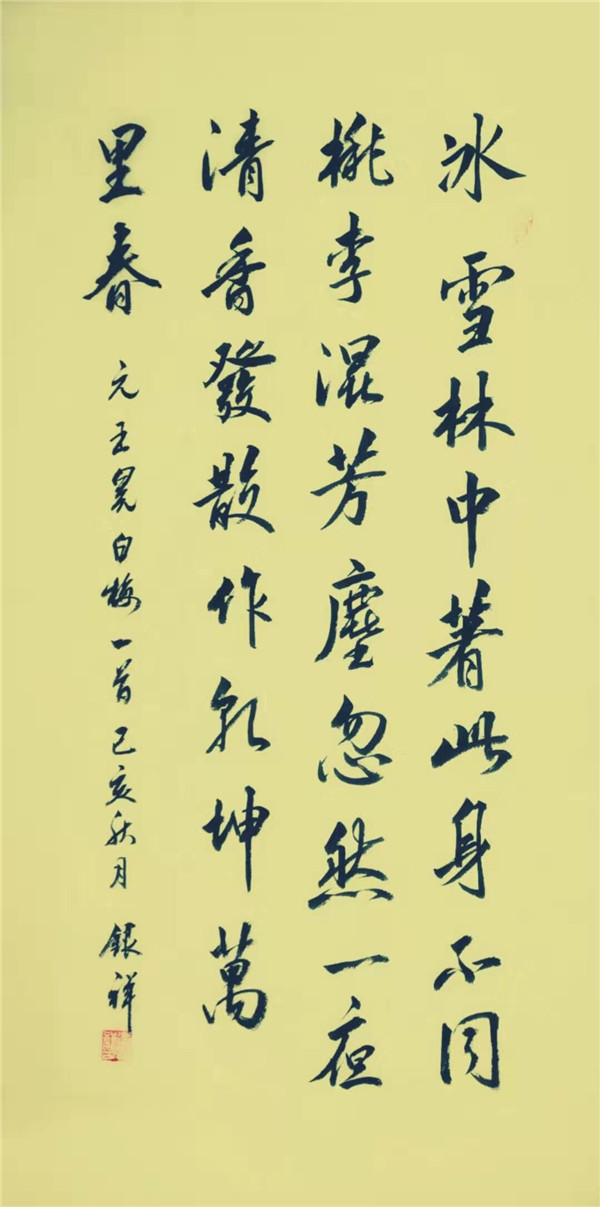 冰雪林中著此身不同
桃李混芳塵忽然一夜
清香發散作乾坤萬
里春
元王冕白梅一首己亥秋月
銀祥